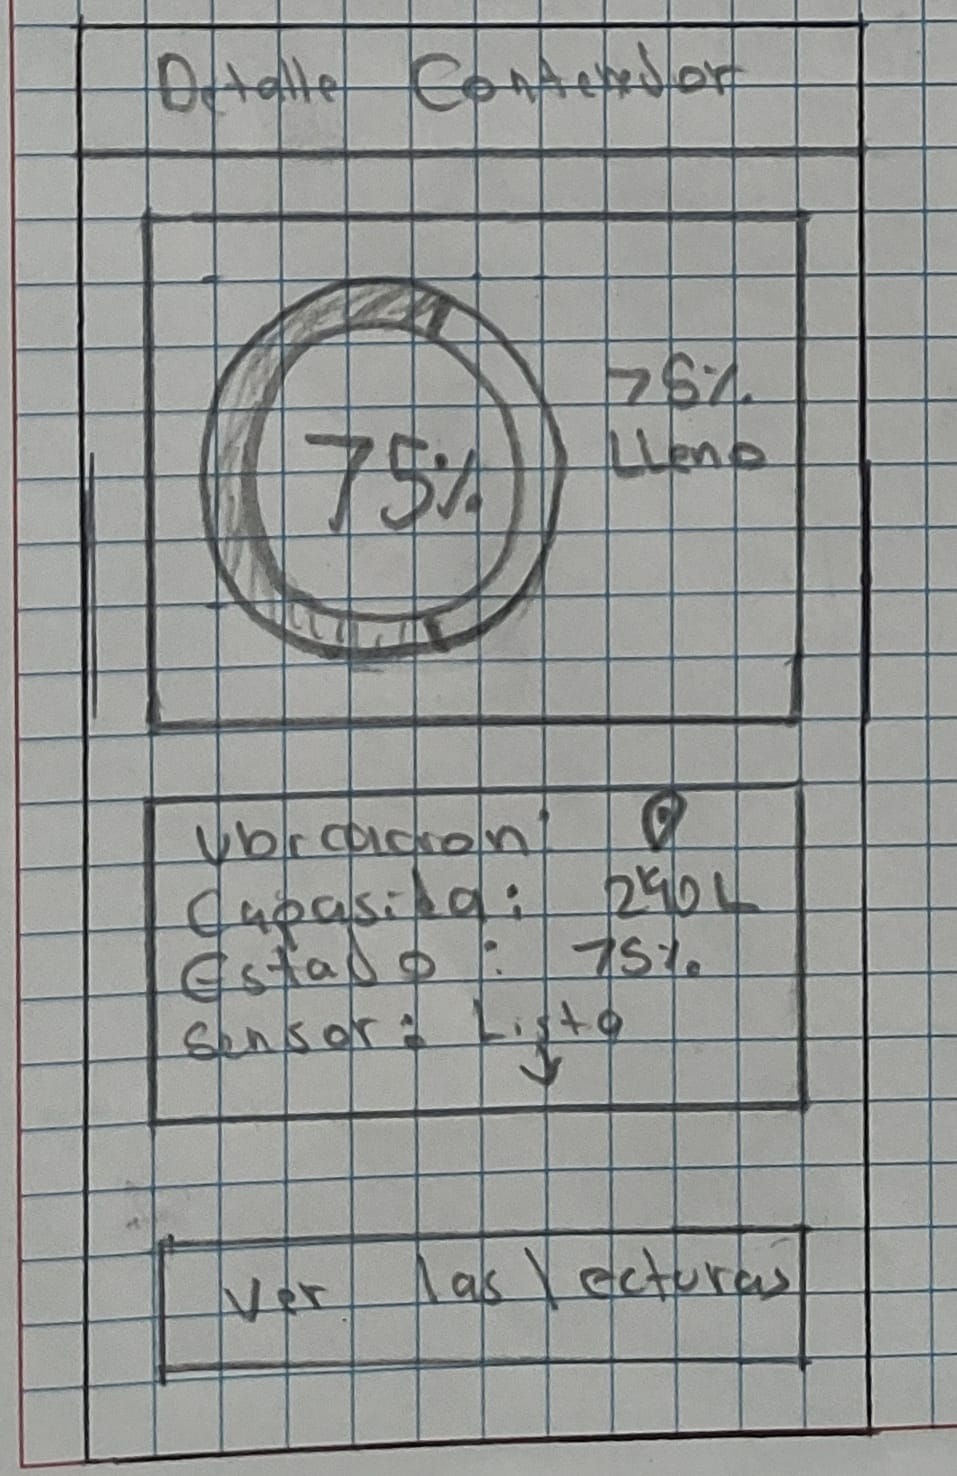 Detalle Contenedor
75%
75%
LLeno
Ubicacion:
Capasida: 240L
Estado: 75%
Sensor: Listo
Ver las lecturas